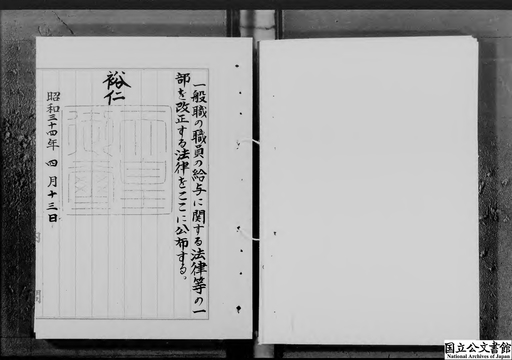 一般職の職員の給与に関する法律等の一
部を改正する法律をここに公布する。
裕仁
天皇
御璽
昭和三十四年 四 月 十三 日
内閣
国立公文書館
National Archives of Japan